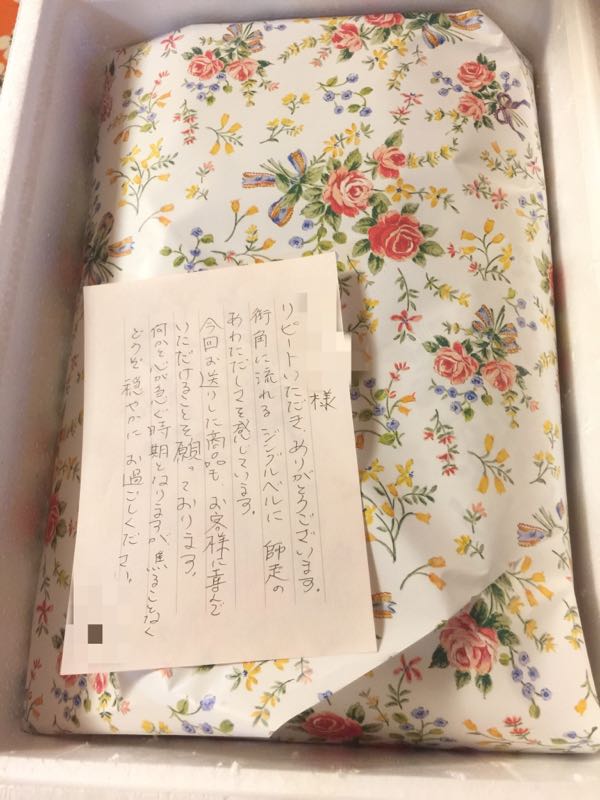 様
リピートいただき、ありがとうございます。
街角に流れるジングルベルに 師走の
あわただしさを感じています。
今回お送りした商品も お客様に喜んで
いただけることを願っております。
何かと心が急ぐ時期となりますが、焦ることなく
どうぞ穏やかに お過ごしください。